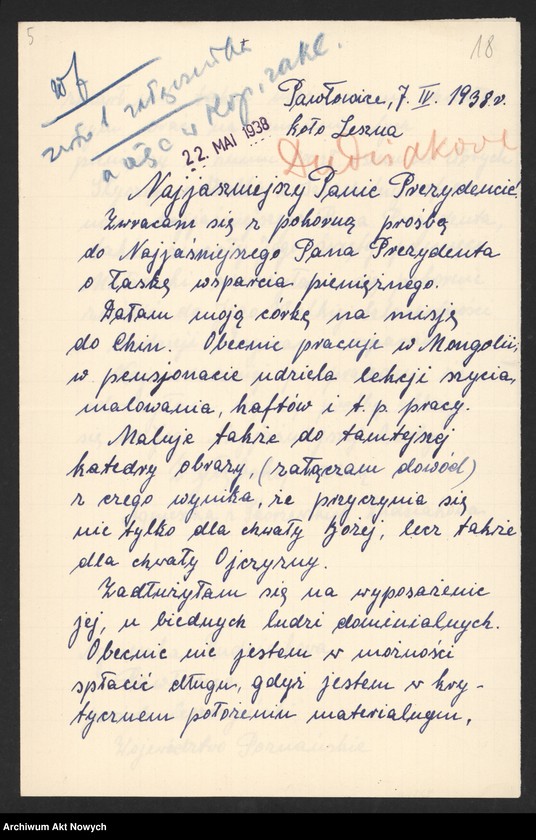 5
18
Pawłowice, 7. IV. 1938 r.
koło Leszna
22. MAI 1938
Najjaśniejszy Panie Prezydencie
Zwracam się z pokorną prośbą
do Najjaśniejszego Pana Prezydenta
o łaskę wsparcia pieniężnego.
Dałam moją córkę na misję
do Chin. Obecnie pracuje w Mongolii,
w pensjonacie udziela lekcji szycia,
malowania, haftów i t. p. pracy.
Maluje także do tamtejszej
katedry obrazy, (załączam dowód)
z czego wynika, że przyczynia się
nie tylko dla chwały Bożej, lecz także
dla chwały Ojczyzny.
Zadłużyłam się na wyposażenie
jej, u biednych ludzi dominialnych.
Obecnie nie jestem w możności
spłacić długu, gdyż jestem w kry-
tycznem położeniu materialnym,
Województwo Poznańskie
Archiwum Akt Nowych